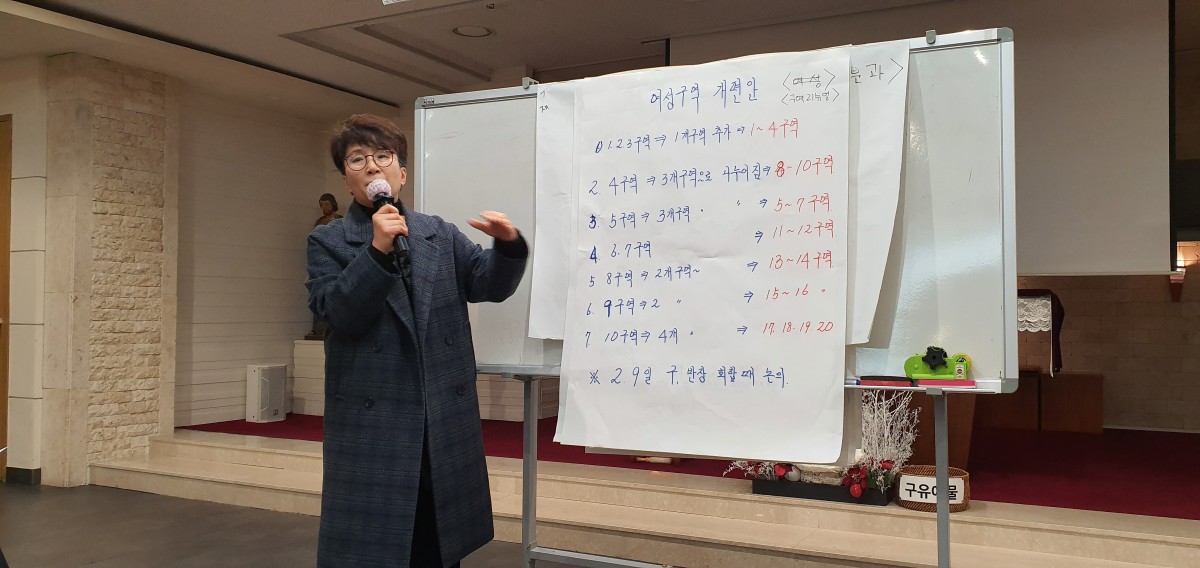 여성구역 개편안
<여성> 분과>
<구역 리뉴얼>
1. 1.2.3구역 ⇒ 1개구역 추가 ⇒ 1~4구역
2 4구역 ⇒ 3개구역으로 나누어짐 ⇒ 8-10구역
3. 5구역 ⇒ 3개구역 " " ⇒ 5~7구역
4. 6.7구역 ⇒ 11~12구역
5 8구역 ⇒ 2개구역~ ⇒ 13~14구역
6. 9구역 ⇒ 2 " ⇒ 15~16 "
7 10구역 ⇒ 4개 " ⇒ 17. 18. 19. 20
※ 2 9일 구, 반장 회합때 논의.
구유예물